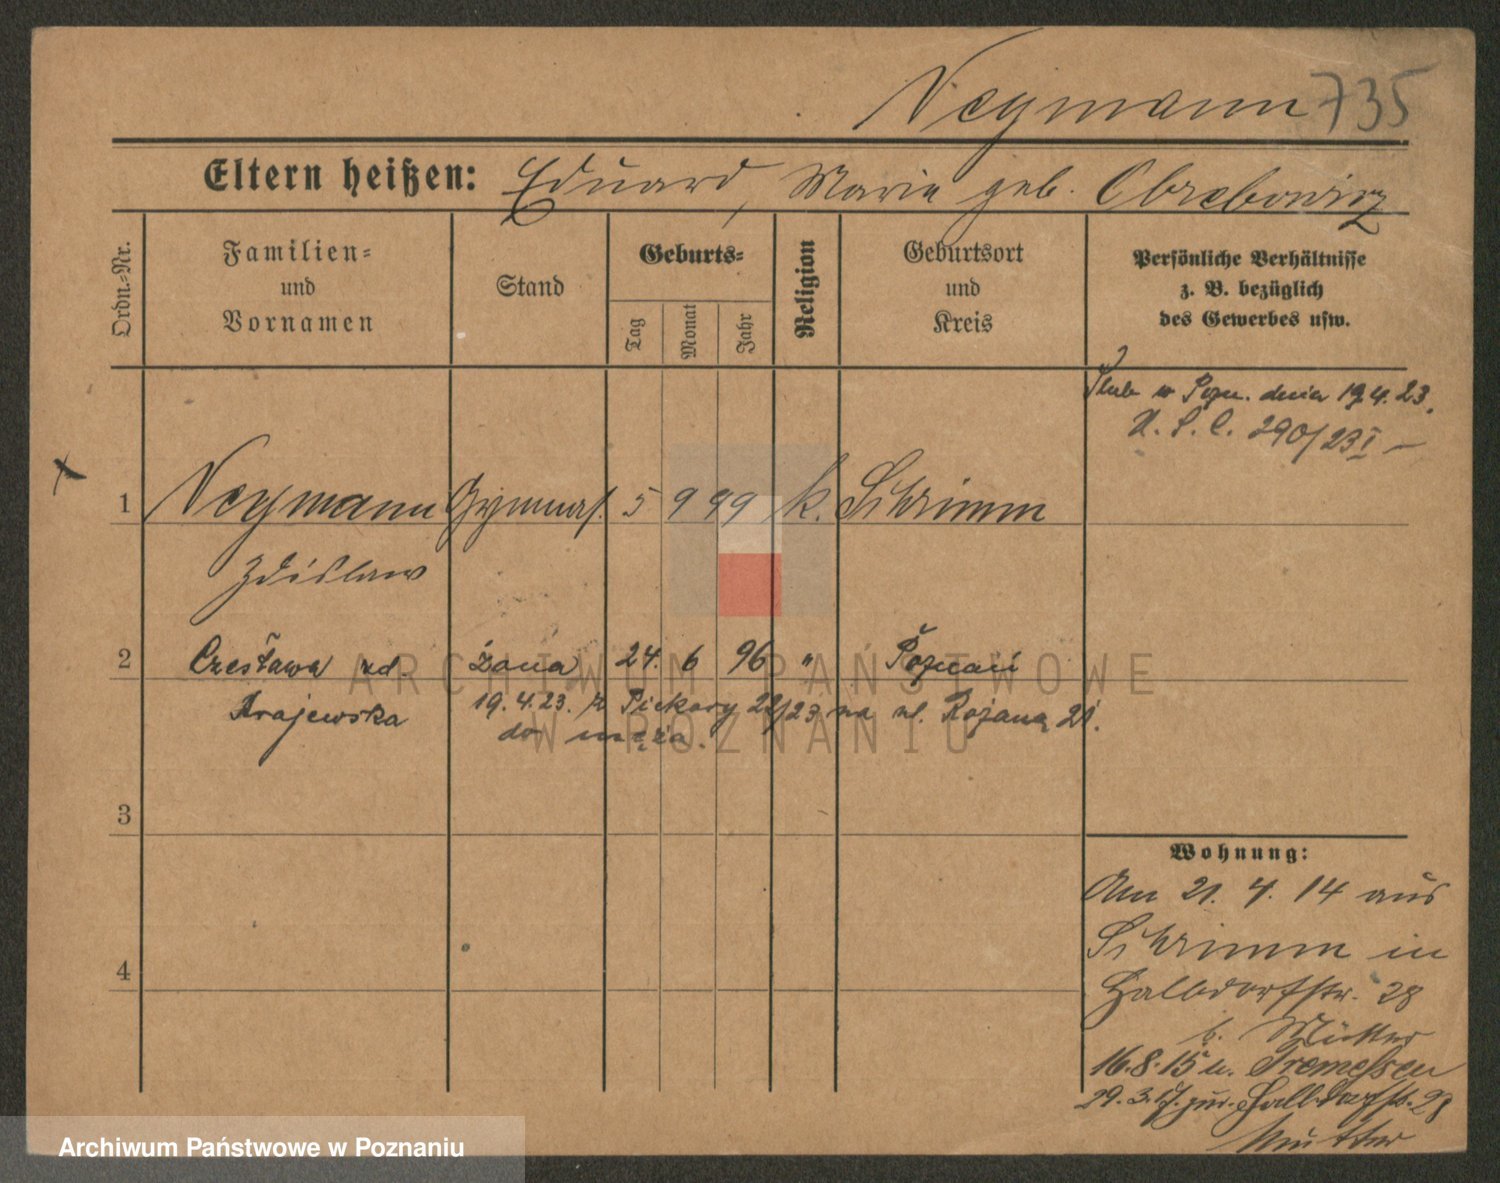 Neymann 735
Eltern heißen: Eduard, Marie geb. Obrebowicz
Ordn.-Nr.
Familien-
und
Vornamen
Stand
Geburts-
Tag
Monat
Jahr
Religion
Geburtsort
und
Kreis
Persönliche Verhältnisse
z. B. bezüglich
des Gewerbes usw.
Ślub w Pozn. dnia 19.4.23.
U. S. C. 290/23 I
1 Neymann Gymnas. 5 9 99 k. Schrimm
Zdislaw
2 Czesława zd. żona 24. 6 96 " Poznań
Krajewska 19.4.23. z Piekary 22/23 na ul. Różaną 21.
do męża.
3
4
Wohnung:
Am 21. 4. 14 aus
Schrimm in
Halbdorfstr. 28
b. Mutter
16.8.15 n. Tremessen
29.3.17. zur. Halbdorfstr. 28
Mutter
ARCHIWUM PAŃSTWOWE
W POZNANIU
Archiwum Państwowe w Poznaniu